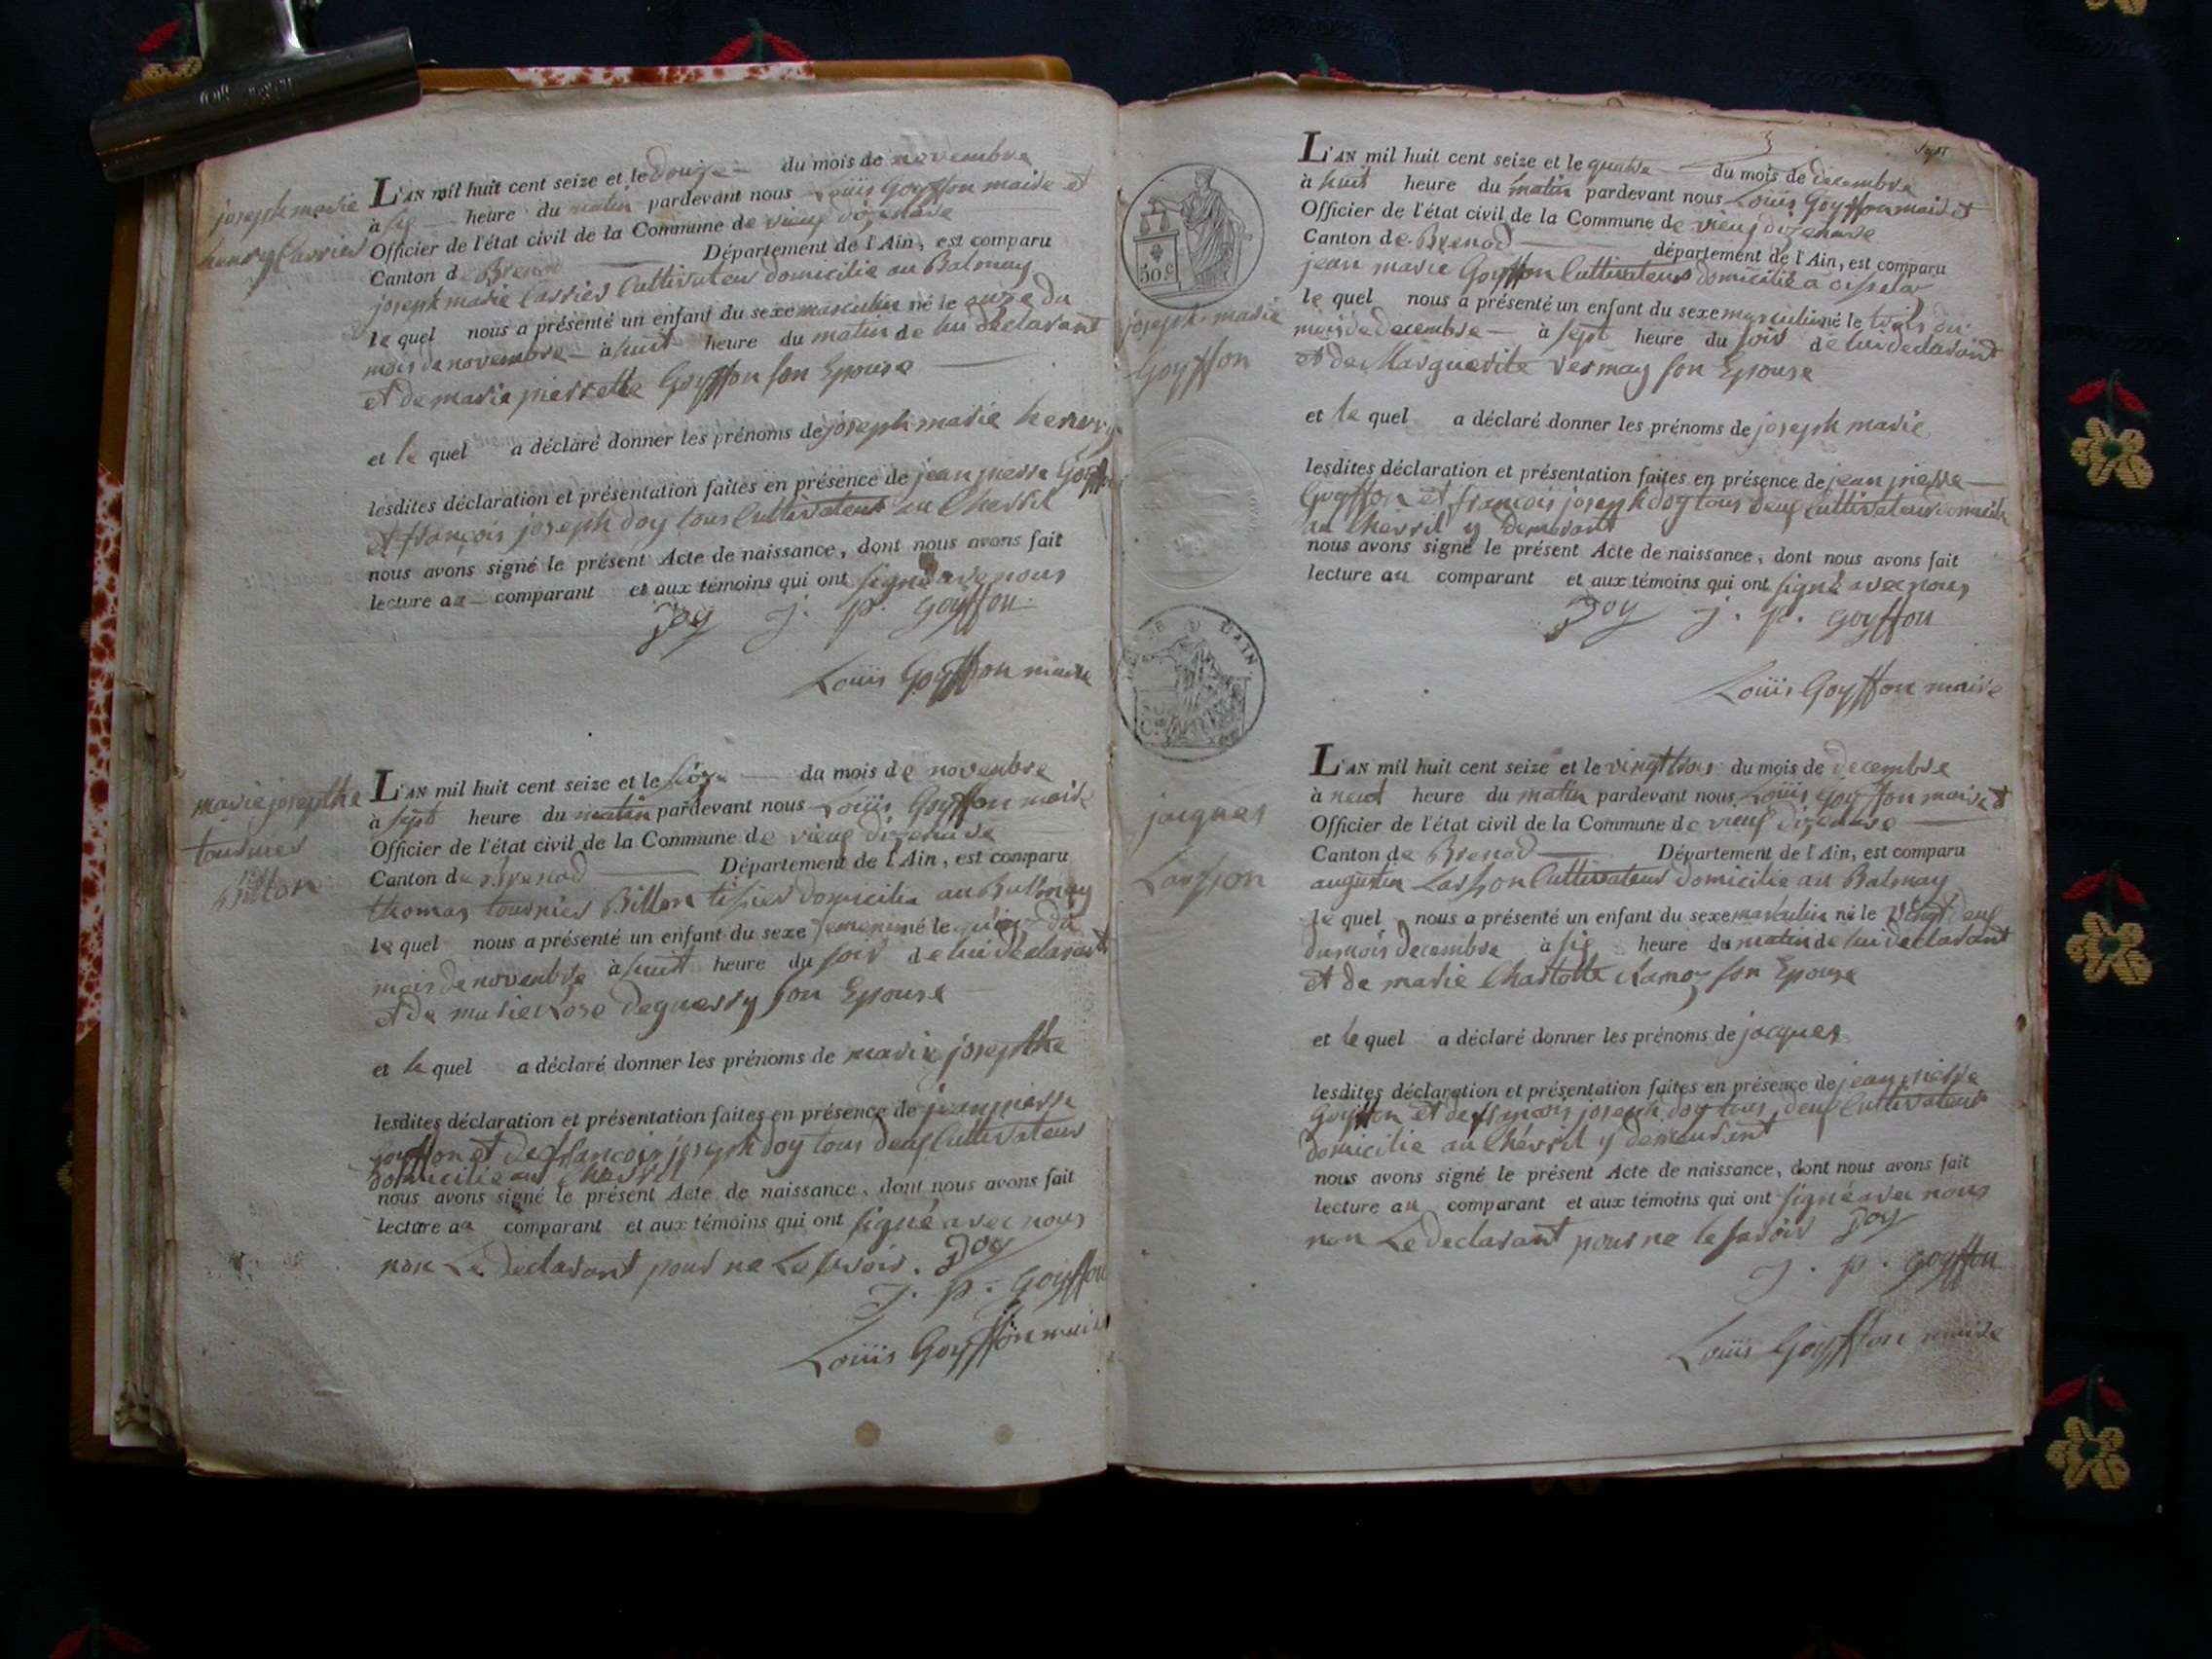 joseph marie
henry Carrier
L'AN mil huit cent seize et le Douze du mois de novembre
à six heure du matin pardevant nous Louis Goyffon maire et
Officier de l'état civil de la Commune de vieux dizenave
Canton de Brenod Département de l'Ain, est comparu
joseph marie Carrier Cultivateur domicilié au Balmay
le quel nous a présenté un enfant du sexe masculin né le onze du
mois de novembre à huit heure du matin de lui déclarant
et de marie pierrette Goyffon son Epouse
et le quel a déclaré donner les prénoms de joseph marie henry
lesdites déclaration et présentation faites en présence de jean pierre Goyffon
et françois joseph doy tous Cultivateur au Chevril
nous avons signé le présent Acte de naissance, dont nous avons fait
lecture au comparant et aux témoins qui ont signé avec nous
Doy J. p. Goyffon
Louis Goyffon maire
marie josephte
tournier
Billon
L'AN mil huit cent seize et le du mois de novembre
à sept heure du matin pardevant nous Louis Goyffon maire
Officier de l'état civil de la Commune de vieux dizenave
Canton de Brenod Département de l'Ain, est comparu
thomas tournier Billon tissier domicilié au Balmay
le quel nous a présenté un enfant du sexe femenin né le du
mois de novembre à huit heure du soir de lui déclarant
et de marie Rose deguerry son Epouse
et le quel a déclaré donner les prénoms de marie josephte
lesdites déclaration et présentation faites en présence de jean pierre
goyffon et de françois joseph doy tous deux Cultivateur
domicilié au Chevril
nous avons signé le présent Acte de naissance, dont nous avons fait
lecture au comparant et aux témoins qui ont signé avec nous
non Le declarant pour ne Le savoir. Doy
J. p. Goyffon
Louis Goyffon maire
3
sept
50 c
joseph marie
Goyffon
L'AN mil huit cent seize et le quatre du mois de decembre
à huit heure du matin pardevant nous Louis Goyffon maire et
Officier de l'état civil de la Commune de vieux dizenave
Canton de Brenod département de l'Ain, est comparu
jean marie Goyffon Cultivateur domicilié a
le quel nous a présenté un enfant du sexe masculin né le trois du
mois de decembre à sept heure du soir de lui declarant
et de Marguerite vermay son Epouse
et le quel a déclaré donner les prénoms de joseph marie
lesdites déclaration et présentation faites en présence de jean pierre
Goyffon et françois joseph doy tous deux Cultivateur domicilié
au Chevril y demeurant
nous avons signé le présent Acte de naissance, dont nous avons fait
lecture au comparant et aux témoins qui ont signé avec nous
Doy J. p. Goyffon
Louis Goyffon maire
L'AIN
jacques
Lasson
L'AN mil huit cent seize et le vingt trois du mois de decembre
à neuf heure du matin pardevant nous Louis goyffon maire et
Officier de l'état civil de la Commune de vieux dizenave
Canton de Brenod Département de l'Ain, est comparu
augustin Lasson Cultivateur domicilie au Balmay
le quel nous a présenté un enfant du sexe masculin né le vingt deux
du mois decembre à six heure du matin de lui declarant
et de marie Charlotte Ramoz son Epouse
et le quel a déclaré donner les prénoms de jacques
lesdites déclaration et présentation faites en présence de jean pierre
Goyffon et de françois joseph doy tous deux Cultivateur
domicilie au Chévril y demeurent
nous avons signé le présent Acte de naissance, dont nous avons fait
lecture au comparant et aux témoins qui ont signé avec nous
non Le declarant pour ne le savoir Doy
J. p. goyffon
Louis Goyffon maire